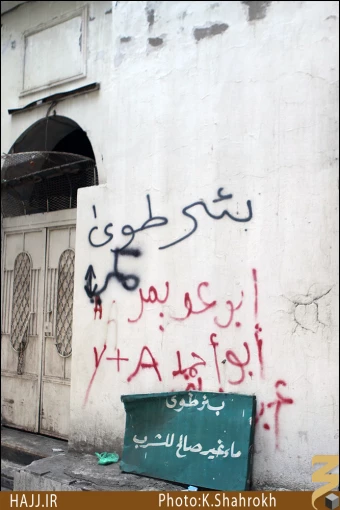 بئر طوى
ابو عديمر
A
ابو أحمد Y+A
بئر طوى
ماء غير صالح للشرب
HAJJ.IR
Photo:K.Shahrokh